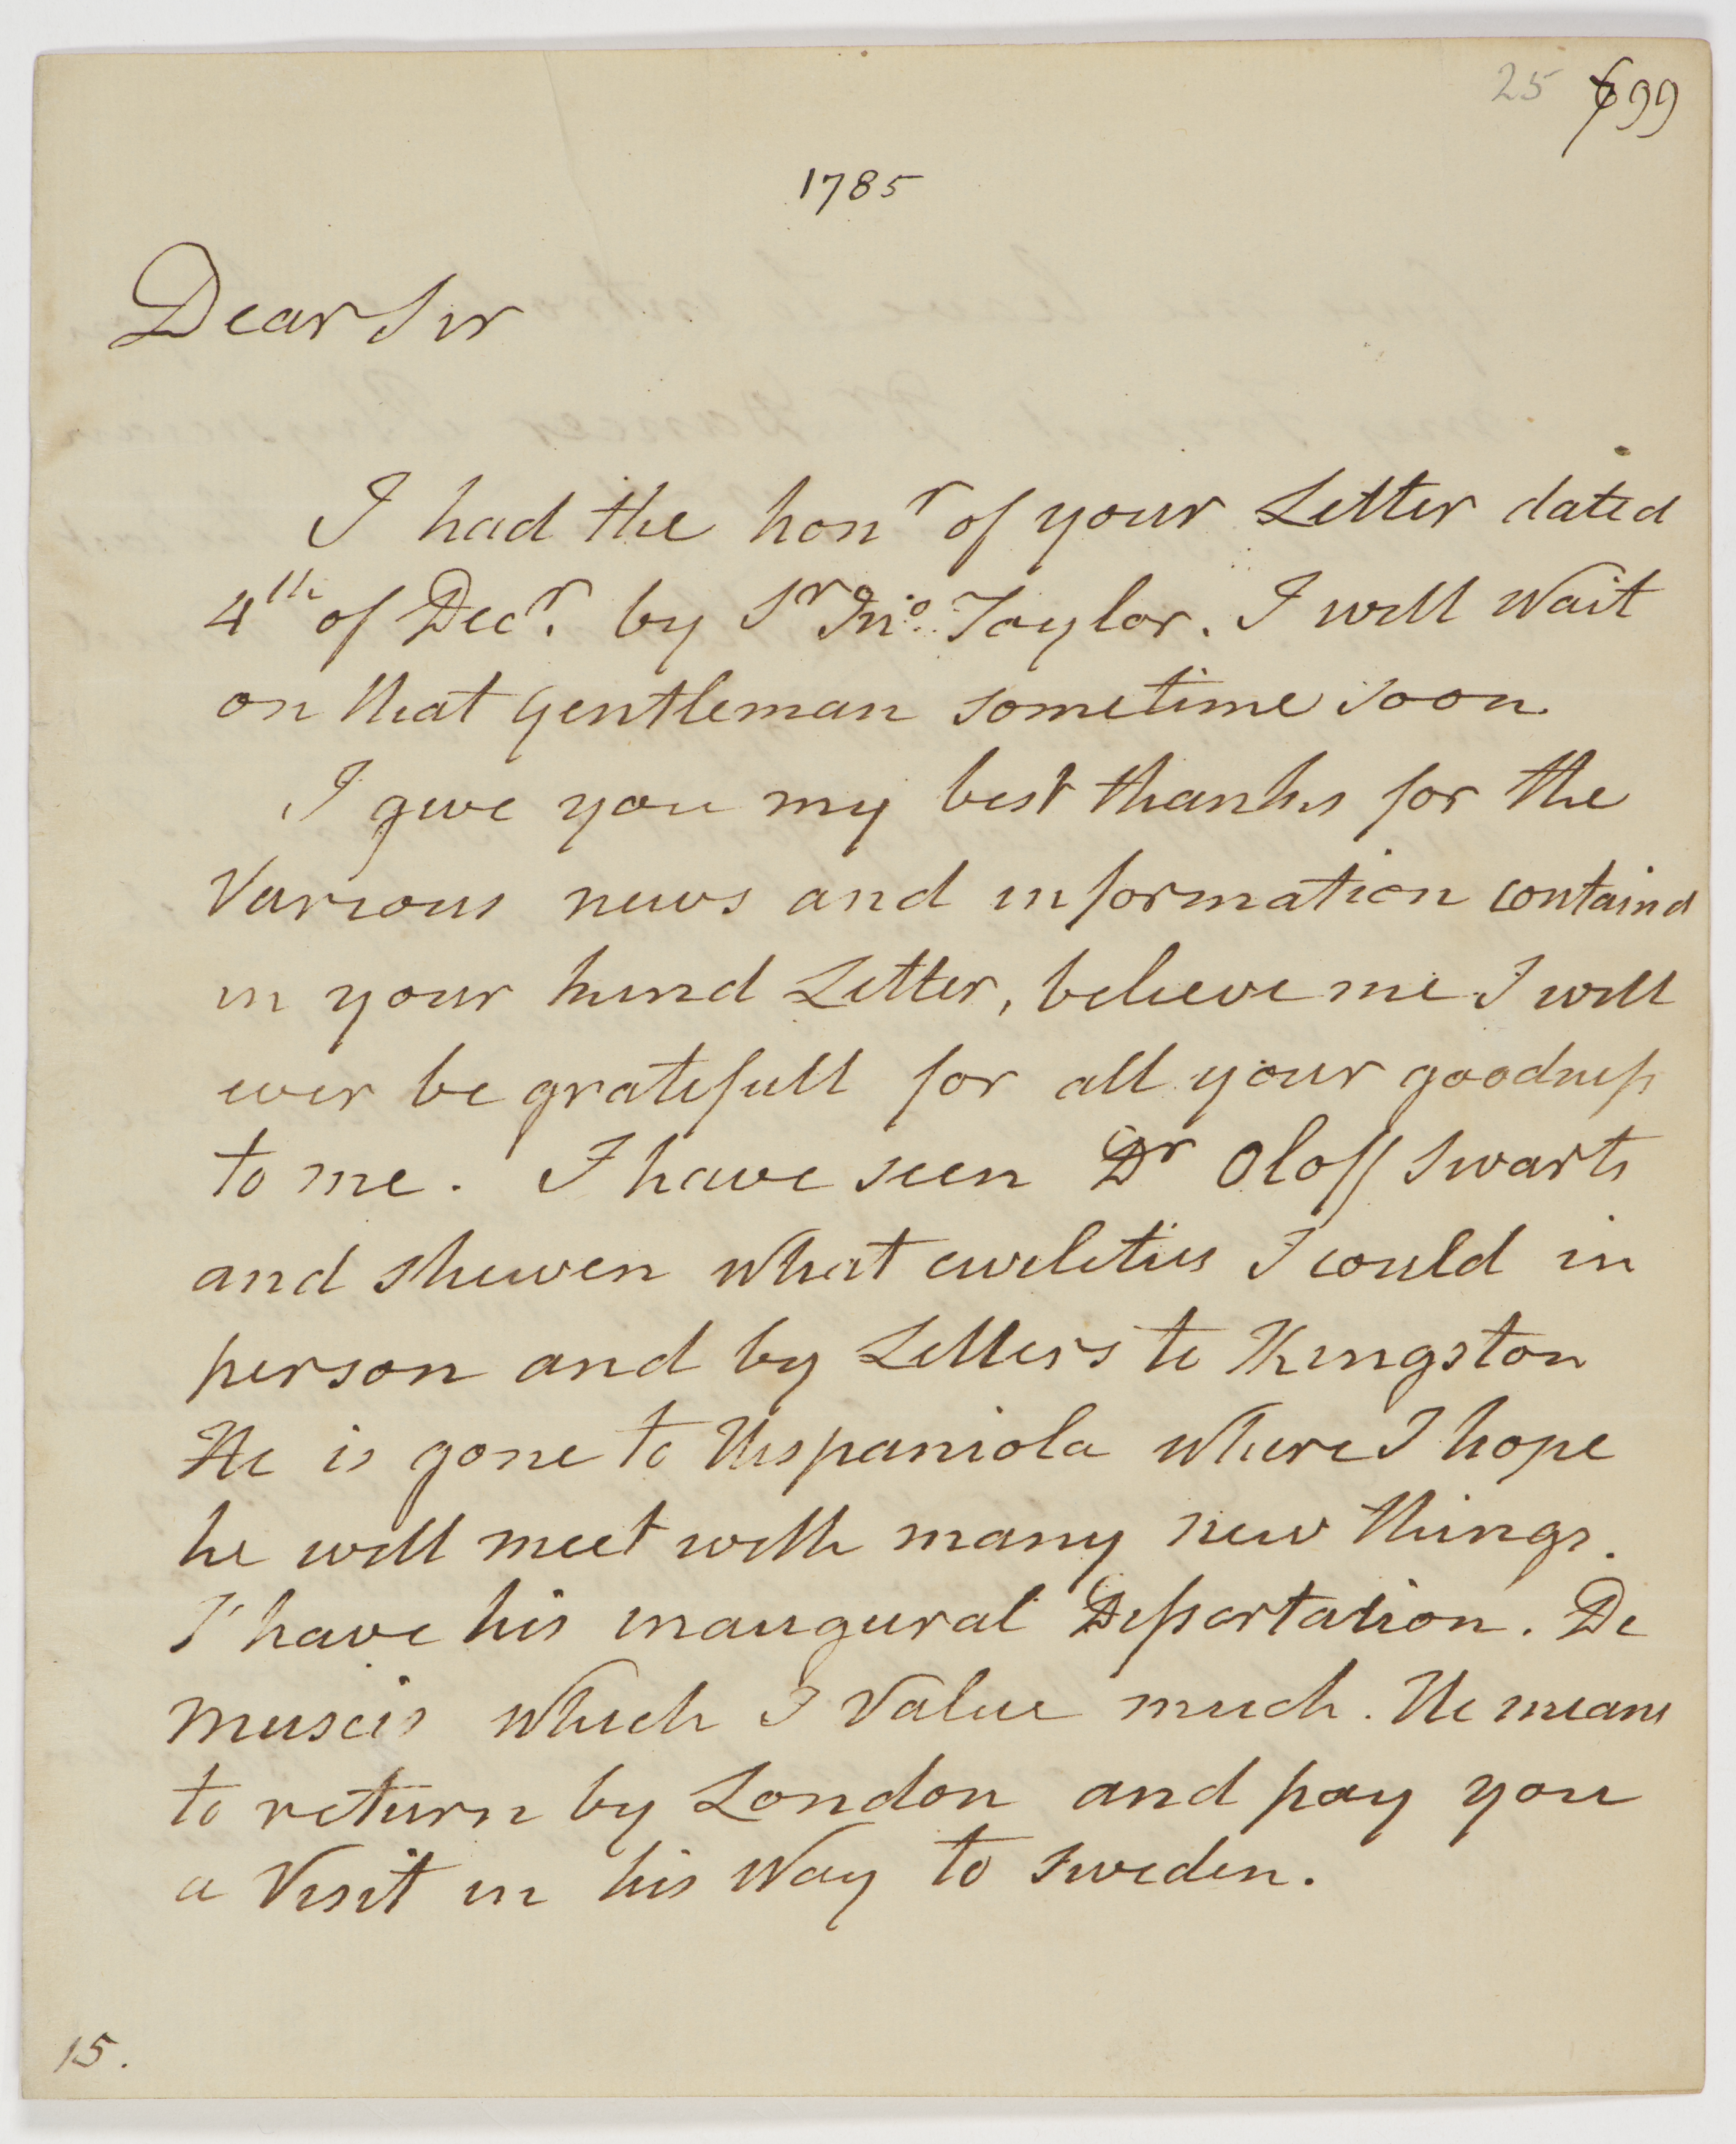 25 699
1785
Dear Sir
I had the honr of your Letter dated
4th of Decr. by Sr Jno. Taylor. I will Wait
on that gentleman sometime soon
I give you my best thanks for the
Various news and information containd
in your kind Letter, believe me I will
ever be gratefull for all your goodness
to me. I have seen Dr Oloff Swarts
and shewen what civilities I could in
person and by Letters to Kingston
He is gone to Hispaniola where I hope
he will meet with many new things.
I have his inaugural Dissertation. De
muscis which I Value much. He means
to return by London and pay you
a Visit in his Way to Sweden.
15.